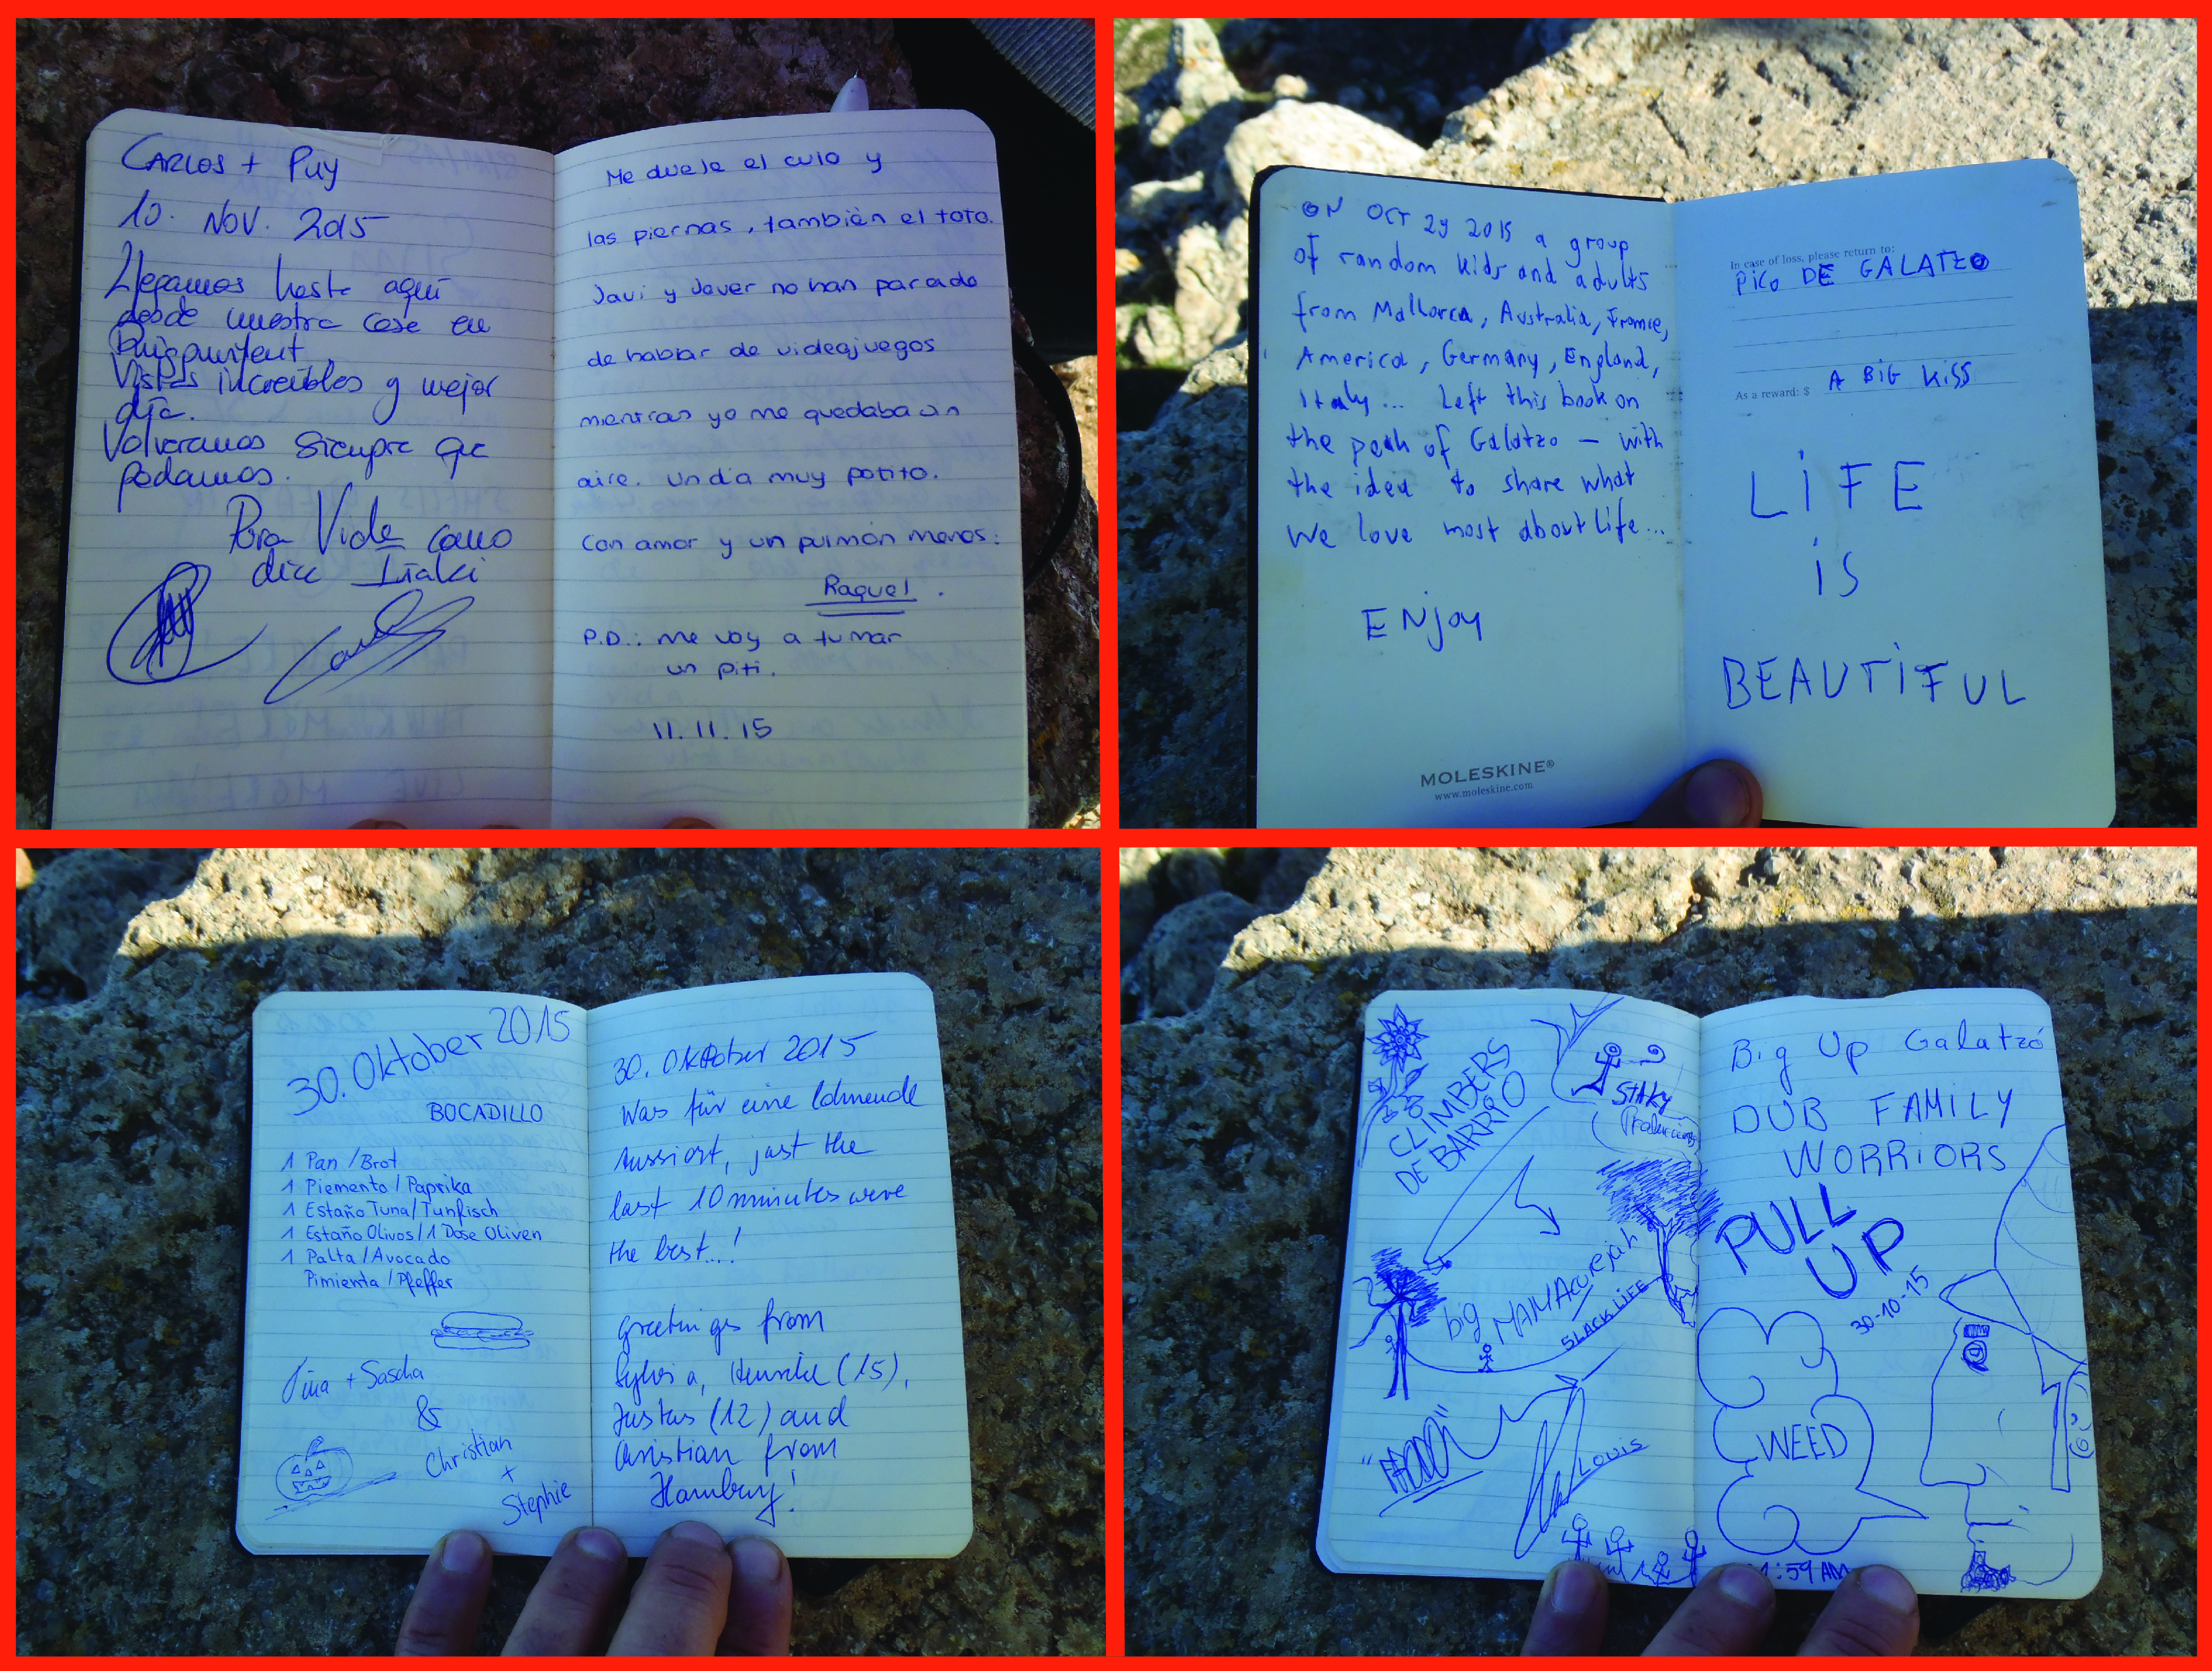 CARLOS + Puy
10. NOV. 2015
Llegamos hasta aquí
desde nuestra casa en
Puigpunyent.
Vistas increíbles y mejor
día.
Volveremos siempre que
podamos.
Pura Vida como
dice Iñaki
Me duele el culo y
las piernas, también el toto.
Javi y Javer no han parado
de hablar de videojuegos
mientras yo me quedaba sin
aire. Un día muy potito.
Con amor y un pulmón menos:
Raquel.
P.D.: me voy a fumar
un piti.
11.11.15
ON OCT 29 2015 a group
of random kids and adults
from Mallorca, Australia, France,
America, Germany, England,
Italy... Left this book on
the peak of Galatzo – with
the idea to share what
we love most about life...
ENjoy
MOLESKINE®
www.moleskine.com
In case of loss, please return to:
PICO DE GALATZO
As a reward: $ A BIG KISS
LiFE
iS
BEAUTiFUL
30. Oktober 2015
BOCADILLO
1 Pan / Brot
1 Piemento / Paprika
1 Estaño Tuna / Tunfisch
1 Estaño Olivos / 1 Dose Oliven
1 Palta / Avocado
Pimienta / Pfeffer
Tina + Sascha
&
Christian
+
Stephie
30. Oktober 2015
Was für eine lohnende
Aussicht, just the
last 10 minutes were
the best...!
Greetings from
Sylvia, (15),
Justus (12) and
Christian from
Hamburg!
CLIMBERS
DE BARRiO
big MAMA
SLACK LiFE
LOUIS
Big Up Galatzó
DUB FAMILY
WORRiORS
PULL
UP
30-10-15
WEED
:59 AM